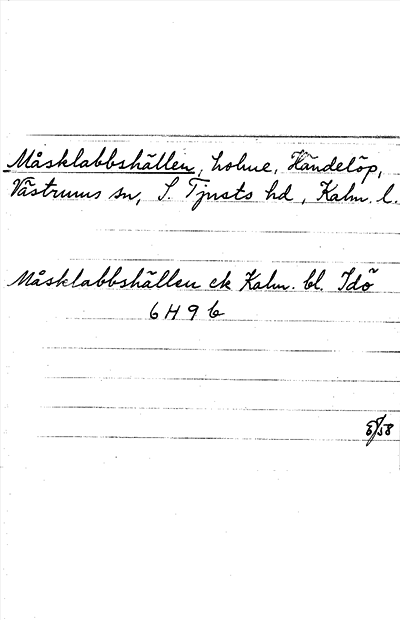 Måsklabbshällen, holme, Händelöp,
Västrums sn, S. Tjusts hd, Kalm. l.
Måsklabbshällen ek Kalm. bl. Idö
6 H 9 b
58